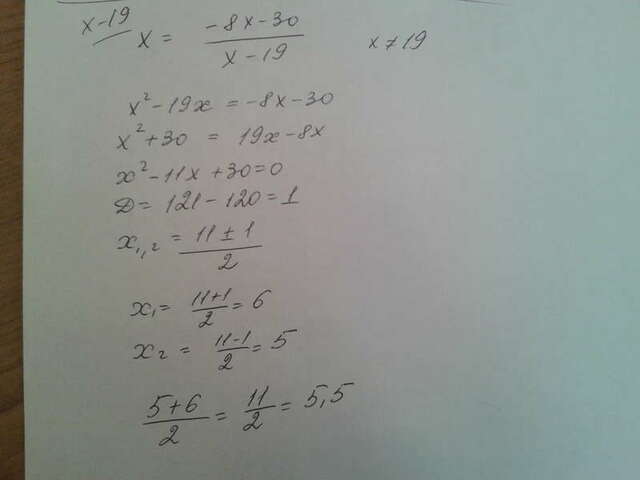 x-19 x = (-8x-30)/(x-19) x≠19
x²-19x = -8x-30
x²+30 = 19x-8x
x²-11x+30=0
D= 121-120=1
x₁,₂ = (11±1)/2
x₁= (11+1)/2 = 6
x₂ = (11-1)/2 = 5
(5+6)/2 = 11/2 = 5,5